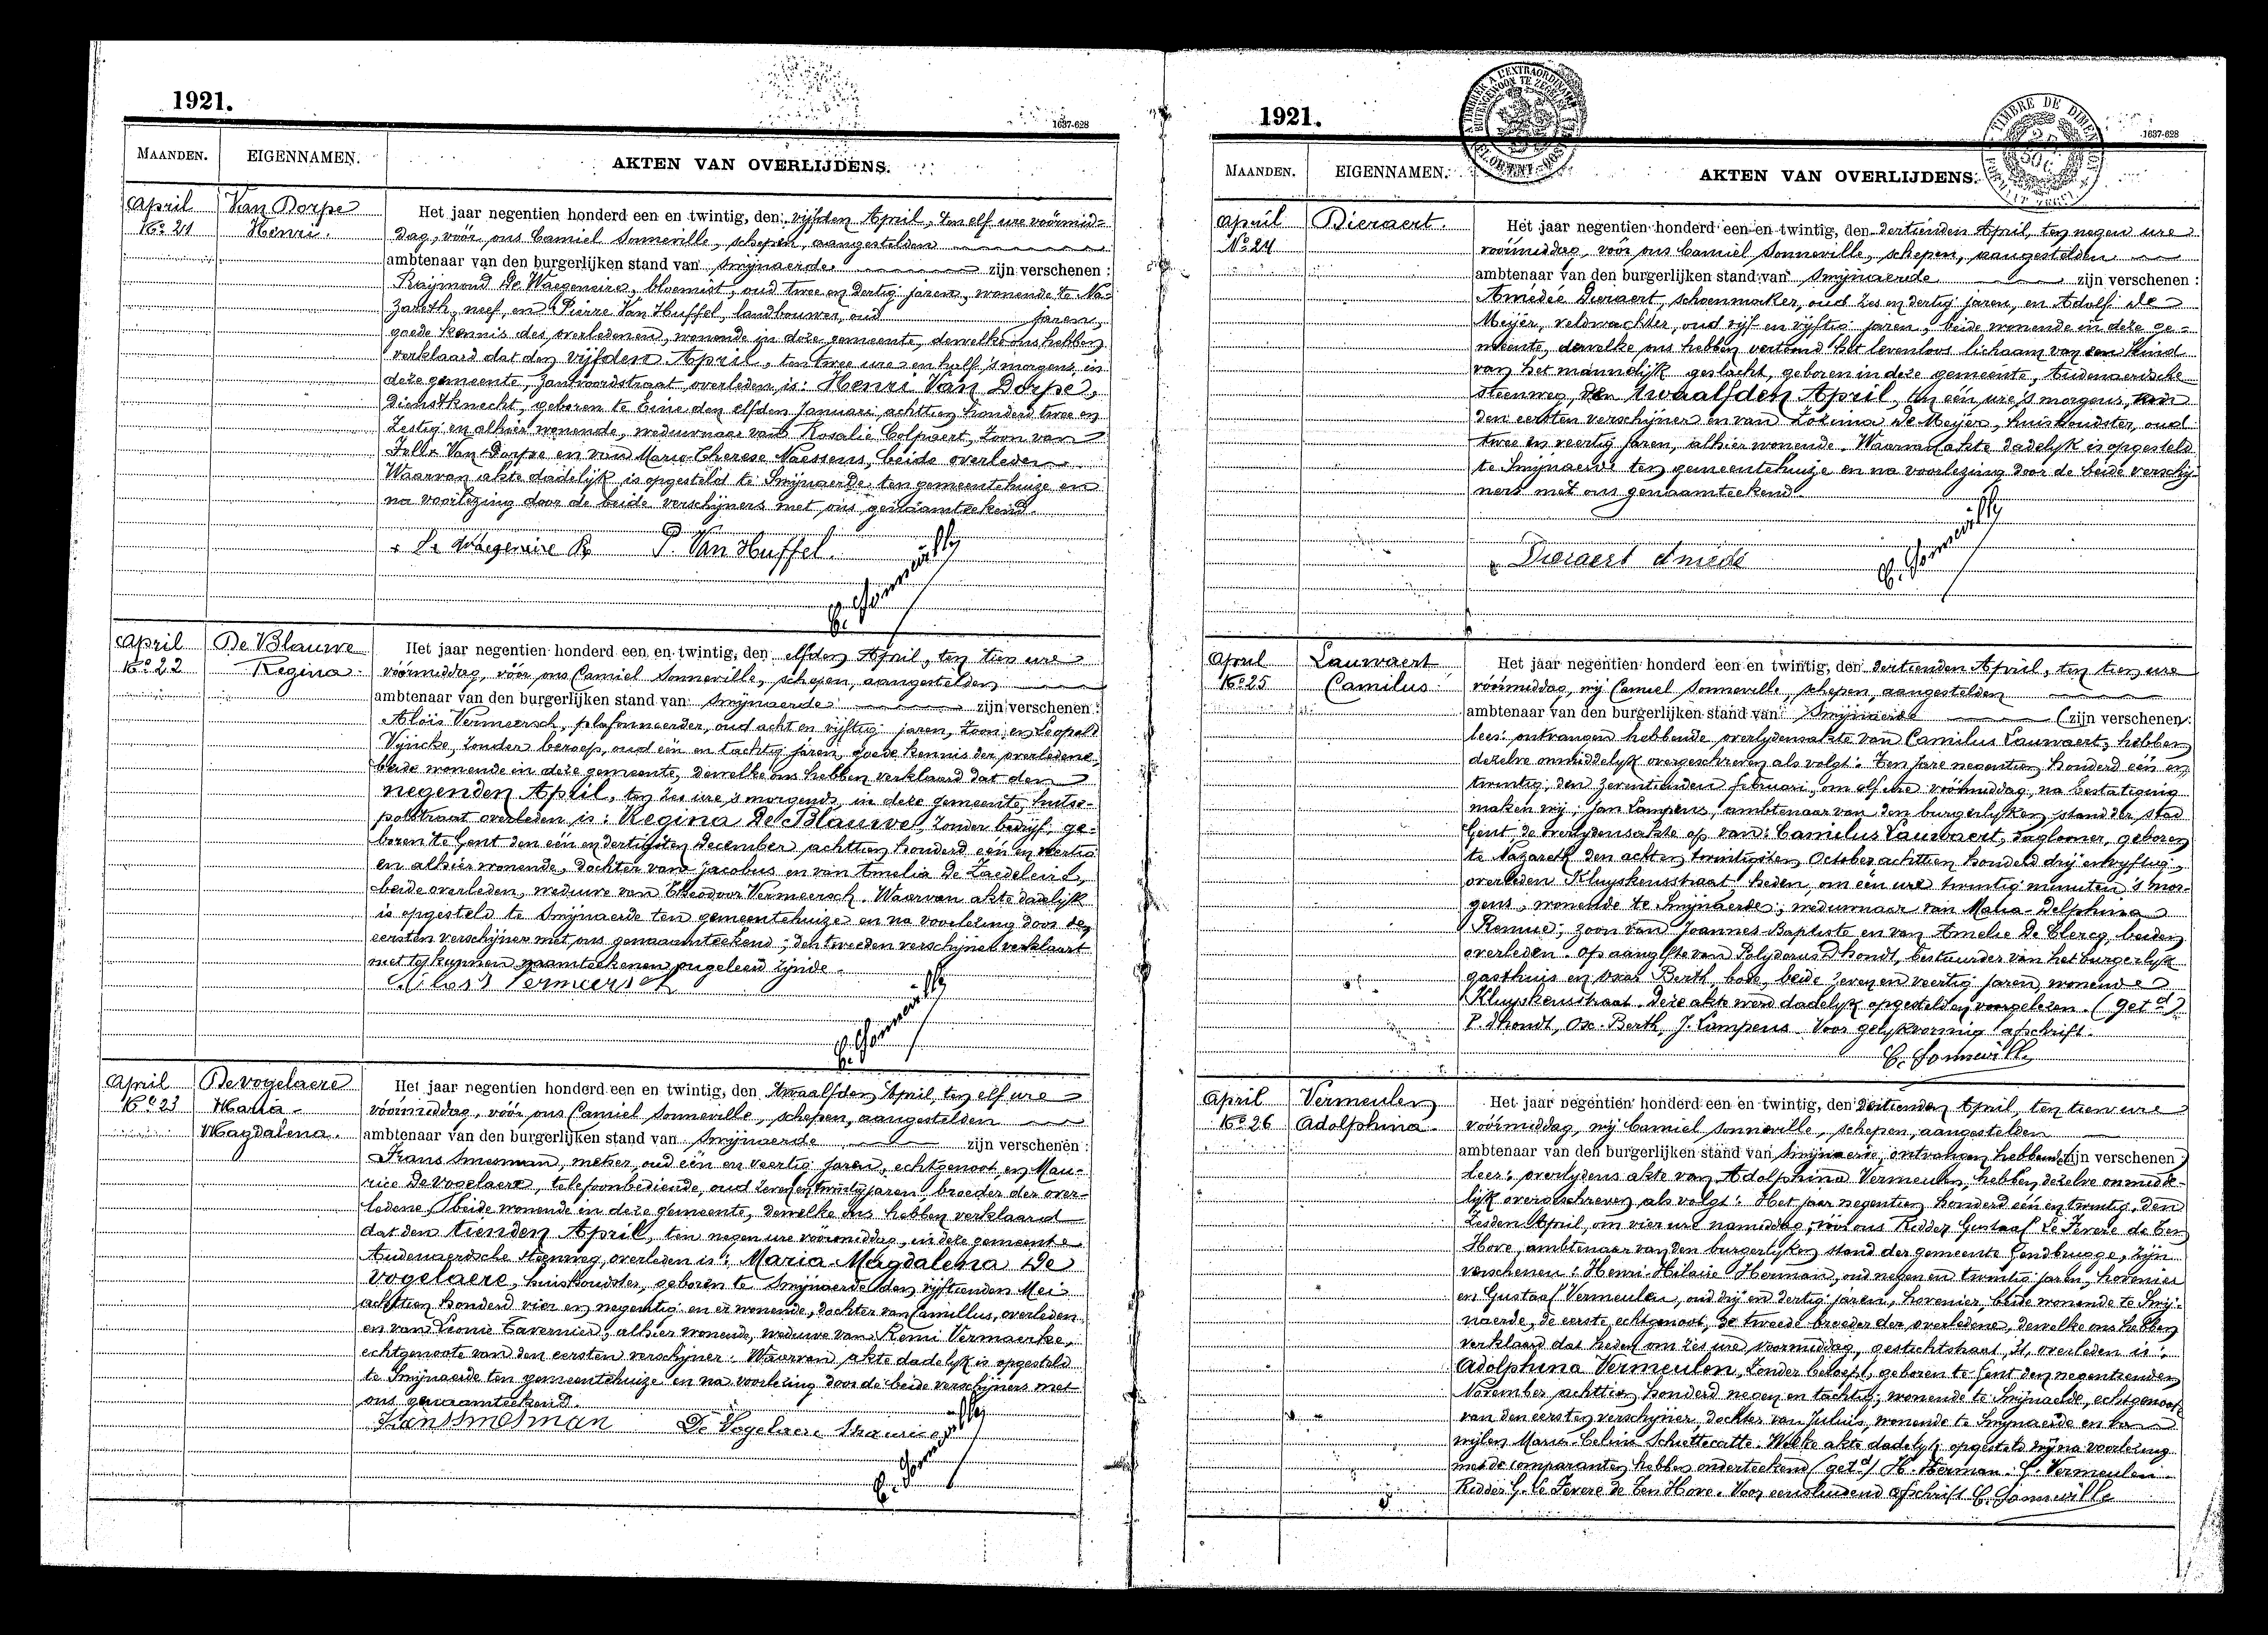 1921.
1637-628
MAANDEN.
EIGENNAMEN.
AKTEN VAN OVERLIJDENS.
April
No 21
Van Dorpe
Henri.
Het jaar negentien honderd een en twintig, den vijfden April, ten elf ure voórmid-
dag, vóór ons Camiel Sonneville, schepen, aangestelden
ambtenaar van den burgerlijken stand van Smijnaerde zijn verschenen :
Raijmond De Waegeneire, bloemist, oud twee en dertig jaren, wonende te Na-
zareth, neef, en Pierre Van Huffel, landbouwer, oud jaren,
goede kennis des overledenen, wonende in deze gemeente, dewelke ons hebben
verklaard dat den vijfden April, ten twee ure en half 's morgens, in
deze gemeente, overleden is: Henri Van Dorpe,
dienstknecht, geboren te Eine den elfden Januari achttien honderd twee en
zestig en alhier wonende, weduwnaar van Rosalie Colpaert, zoon van
Van Dorpe en van Marie Therese Naessens, beide overleden.
Waarvan akte dadelijk is opgesteld te Smijnaerde ten gemeentehuize en
na voorlezing door de beide verschijners met ons genaamteekend.
De Waegeneire R P. Van Huffel.
C. Sonneville
April
No 22
De Blauwe
Regina
Het jaar negentien honderd een en twintig, den elfden April, ten tien ure
vóórmiddag, vóór ons Camiel Sonneville, schepen, aangestelden
ambtenaar van den burgerlijken stand van Smijnaerde zijn verschenen :
Aloïs Vermeersch, plafonneerder, oud acht en vijftig jaren, zoon, en Leopold
Vijncke, zonder beroep, oud één en tachtig jaren, goede kennis der overledene,
beide wonende in deze gemeente, dewelke ons hebben verklaard dat den
negenden April, ten zes ure 's morgends, in deze gemeente, hutse-
potstraat overleden is: Regina De Blauwe, zonder bedrijf, ge-
boren te Gent den één en dertigsten December achttien honderd één en veertig
en alhier wonende, dochter van Jacobus en van Amelia De Zaedeleire,
beide overleden, weduwe van Theodoor Vermeersch. Waarvan akte dadelijk
is opgesteld te Smijnaerde ten gemeentehuize en na voorlezing door den
eersten verschijner met ons genaamteekend; den tweeden verschijner verklaart
niet te kunnen naamteekenen, ongeleerd zijnde.
Aloïs Vermeersch
C. Sonneville
April
No 23
Devogelaere
Maria-
Magdalena.
Het jaar negentien honderd een en twintig, den twaalfden April, ten elf ure
vóórmiddag, vóór ons Camiel Sonneville, schepen, aangestelden
ambtenaar van den burgerlijken stand van Smijnaerde zijn verschenen :
Frans Smesman, metser, oud één en veertig jaren, echtgenoot, en Mau-
rice Devogelaere, telefoonbediende, oud zeven en twintig jaren, broeder der over-
ledene, beide wonende in deze gemeente, dewelke ons hebben verklaard
dat den tienden April, ten negen ure vóórmiddag, in deze gemeente
Audenaerdsche steenweg, overleden is: Maria-Magdalena De
vogelaere, huishoudster, geboren te Smijnaerde den vijftienden Mei
achttien honderd vier en negentig en er wonende, dochter van Camillus, overleden
en van Leonie Tavernier, alhier wonende, weduwe van Remi Vermaerke,
echtgenoote van den eersten verschijner. Waarvan akte dadelijk is opgesteld
te Smijnaerde ten gemeentehuize en na voorlezing door de beide verschijners met
ons genaamteekend.
Frans Smesman De Vogelaere Maurice
C. Sonneville
1921.
1637-628
MAANDEN.
EIGENNAMEN.
AKTEN VAN OVERLIJDENS.
April
No 24
Dieraert.
Het jaar negentien honderd een en twintig, den dertienden April, ten negen ure
voórmiddag, vóór ons Camiel Sonneville, schepen, aangestelden
ambtenaar van den burgerlijken stand van Smijnaerde zijn verschenen :
Amédée Dieraert, schoenmaker, oud zes en dertig jaren, en Adolf de
Meijer, veldwachter, oud vijf en vijftig jaren, beide wonende in deze ge-
meente, dewelke ons hebben vertoond het levenloos lichaam van een kind
van het mannelijk geslacht, geboren in deze gemeente, Audenaerdsche
steenweg, den twaalfden April, ten één ure 's morgens, van
den eersten verschijner en van Zozima De Meijer, huishoudster, oud
twee en veertig jaren, alhier wonende. Waarvan akte dadelijk is opgesteld
te Smijnaerde ten gemeentehuize en na voorlezing door de beide verschij-
ners met ons genaamteekend.
Dieraert Amédé
C. Sonneville
April
No 25
Lauwaert
Camilus
Het jaar negentien honderd een en twintig, den dertienden April, ten tien ure
vóórmiddag, wij Camiel Sonneville, schepen, aangestelden
ambtenaar van den burgerlijken stand van Smijnaerde (zijn verschenen :
lees: ontvangen hebbende overlydensakte van Camilus Lauwaert, hebben
dezelve onmiddelyk overgeschreven als volgt: Ten jare negentien honderd één en
twintig, den zeventienden februari, om elf ure vóórmiddag, na bestatiging
maken wij: Jan Lampens, ambtenaar van den burgerlyken stand der stad
Gent, de overlydensakte op van: Camilus Lauwaert, daglooner, geboren
te Nazareth den acht en twintigsten October achttien honderd drij en vyftig,
overleden Kluyskensstraat heden, om één ure twintig minuten 's mor-
gens, wonende te Smijnaerde, weduwnaar van Maria-Delphina
Remue; zoon van Joannes-Baptiste en van Amelie De Clercq, beiden
overleden. Op aangifte van Polydorus Dhondt, bestuurder van het burgerlyk
gasthuis en Berth, bode, beide zeven en veertig jaren, wonende
Kluyskensstraat. Deze akte werd dadelyk opgesteld en voorgelezen. (get.d)
P. Dhondt, Osc. Berth, J. Lampens. Voor gelykvormig afschrift.
C. Sonneville
April
No 26
Vermeulen
Adolphina
Het jaar negentien honderd een en twintig, den dertienden April, ten tien ure
vóórmiddag, wij Camiel Sonneville, schepen, aangestelden
ambtenaar van den burgerlijken stand van Smijnaerde, ontvangen hebbende (zijn verschenen :)
lees: overlydens akte van Adolphina Vermeulen, hebben dezelve onmidde-
lijk overgeschreven als volgt: Het jaar negentien honderd één en twintig, den
zesden April, om vier ure namiddag, vóór ons Ridder Gustaaf Le Fevere de Ten
Hove, ambtenaar van den burgerlyken stand der gemeente Gendbrugge, zijn
verschenen: Henri-Hilaire Herman, oud negen en twintig jaren, hovenier
en Gustaaf Vermeulen, oud drij en dertig jaren, hovenier, beide wonende te Smij-
naerde, de eerste echtgenoot, de tweede broeder der overledene, dewelke ons hebben
verklaard dat heden om zes ure voormiddag, gestichtstraat, 21, overleden is:
Adolphina Vermeulen, zonder beroep, geboren te Gent den negentienden
November achttien honderd negen en tachtig, wonende te Smijnaerde, echtgenoote
van den eersten verschijner, dochter van Julius, wonende te Smijnaerde en van
wijlen Marie-Celina Schiettecatte. Welke akte dadelyk opgesteld wij na voorlezing
met de comparanten hebben onderteekend (get.d) H. Herman. G. Vermeulen.
Ridder G. Le Fevere de Ten Hove. Voor eensluidend afschrift C. Sonneville